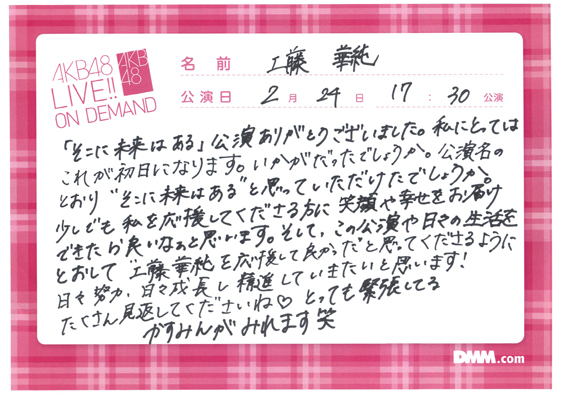 AKB48
LIVE!!
ON DEMAND
AKB
48
名前 工藤 華純
公演日 2月24日 17:30公演
「そこに未来はある」公演ありがとうございました。私にとっては
これが初日になります。いかがだったでしょうか。公演名の
とおり“そこに未来はある”と思っていただけたでしょうか。
少しでも私を応援してくださる方に笑顔や幸せをお届け
できたら良いなぁと思います。そして、この公演や日々の生活を
とおして“工藤華純を応援して良かった”と思ってくださるように
日々努力、日々成長し精進していきたいと思います!
たくさん見返してくださいね♡ とっても緊張してる
かすみんがみれます笑
DMM.com